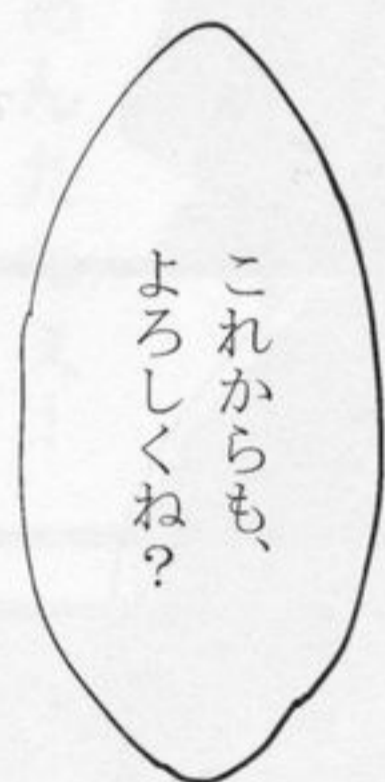 これからも、
よろしくね？